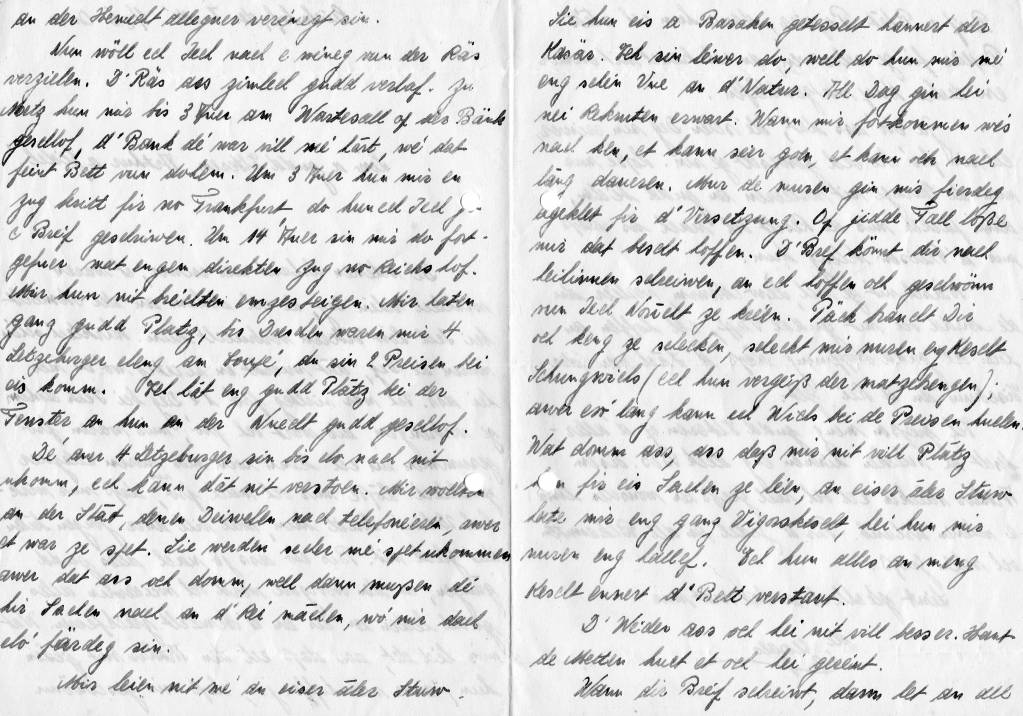 an der Hemecht alleguer vereinegt sin.
Nun wöll ech Iech nach e wineg vun der Räs
verzielen. D'Räs ass zimlech gudd verlaf. Zu
Metz hun mir bis 3 Auer am Wartesall of der Bänk
geschlof, d'Bank dé war vill mé härt, wé dat
feint Bett vun dohem. Um 3 Auer hun mir en
Zug kritt fir no Frankfurt, do hun ech Iech
e Bréf geschriwen. Um 14 Auer sin mir do fort-
gefuer mat engem direkten Zug no Reichshof.
Mir hun nit bréichten emzesteigen. Mir haten
gang gudd Plätz, bis Dresden waren mir 4
Letzeburger eleng am Coupé, du sin 2 Preisen bei
eis komm. Ech hät eng gudd Plätz bei der
Fenster an hun an der Nuecht gudd geschlof.
Dé aner 4 Letzeburger sin bis elo nach nit
ukomm, ech kann dät nit verstoen. Mir wollten
an der Stät, denen Deiwelen nach telefonéeren, awer
et war ze spet. Sie werden secher mé spet ukommen
awer dat ass och domm, well dann mussen dé
hir Sachen nach an d'Rei mächen, wo mir dach
elo färdeg sin.
Mir leien nit mé an eiser äler Stuw.
Sie hun eis a Baraken getesselt hannert der
Kasär. Ech sin léiwer do, well do hun mir mé
eng schén Vue an d'Natur. All Dag gin hei
nei Rekruten erwart. Wann mir fortkommen wés
nach ken, et kann séer goen, et kann och nach
läng daueren. Mar de muren gin mir fierdeg
agekleet fir d'Versetzung. Of jidde Fall losse
mir dat bescht hoffen. D'Bréf kënnt dir nach
heihinnen schreiwen, an ech hoffen och geschwënn
vun Iech Noricht ze kréien. Päck braucht Dir
och keng ze schecken, scheckt mir nuren eng Kescht
Schungwichs (ech hun vergiess der matzehuelen);
awer esó lang kann ech Wichs bei de Preisen huelen.
Wat domm ass, ass dass mir nit vill Plätz
hun fir eis Sachen ze leën, an eiser äler Stuw
hate mir eng gang Vigorskescht, hei hun mir
nuren eng hallef. Ech hun alles an meng
Kescht ennert d'Bett verstaut.
D'Wieder ass och hei nit vill besser. Haut
de Metten huet et och hei gereent.
Wann dir Bréf schreiwt, dann let an all